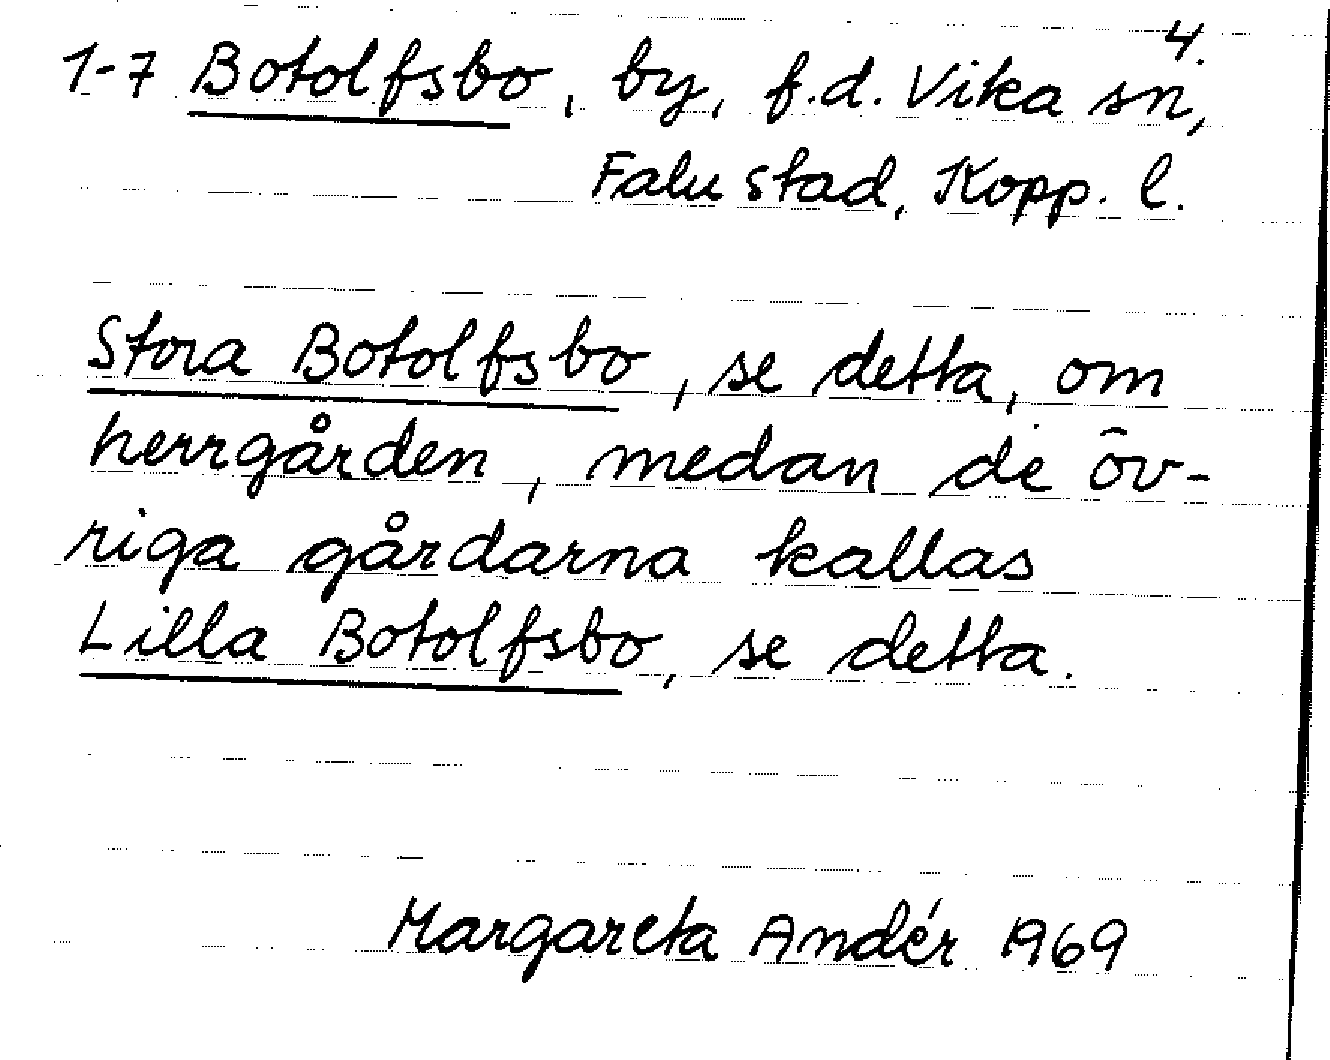 4.
1-7 Botolfsbo, by, f.d. Vika sn,
Falu stad, Kopp. l.
Stora Botolfsbo, se detta, om
herrgården, medan de öv-
riga gårdarna kallas
Lilla Botolfsbo, se detta.
Margareta Andér 1969